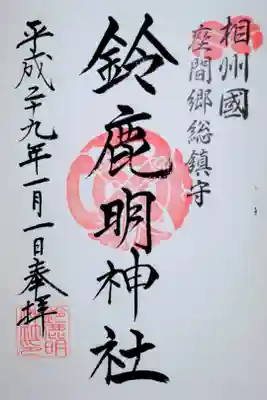 相州國
座間郷総鎮守
鈴鹿明神社
平成二十九年一月一日奉拝